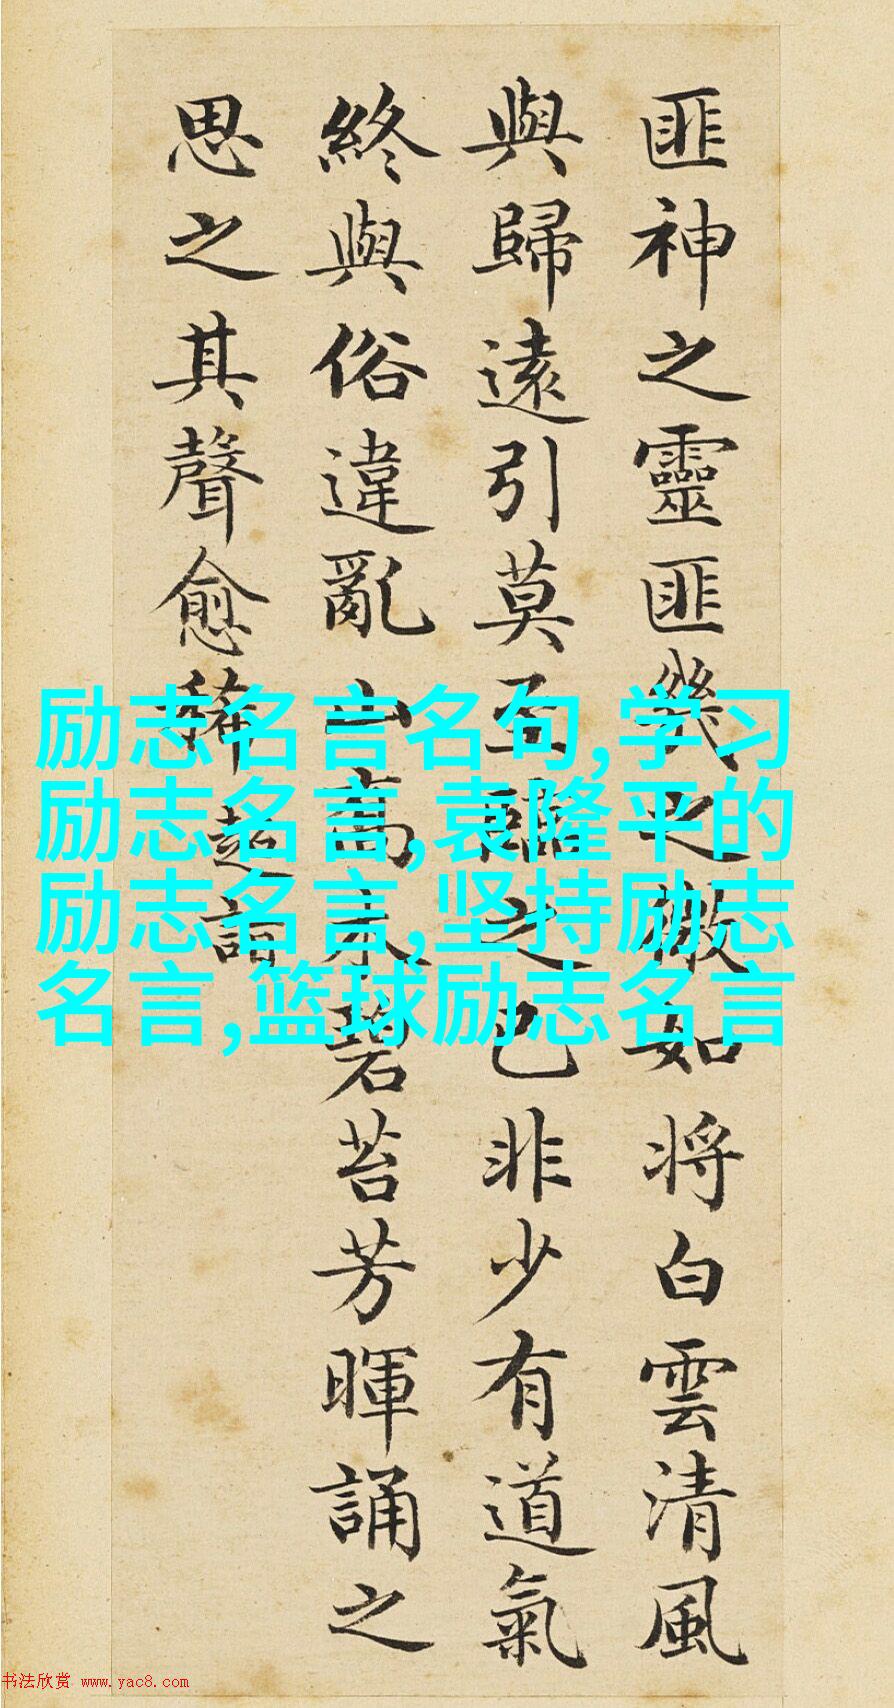 匪神之靈匪匪幾之微如将白雲清風
與歸遠引莫至臨之已非少有道氣
終與俗違亂山高木碧苔芳暉誦之
思之其聲愈稀超詣
励志名言名句,学习
励志名言,袁隆平的
励志名言,坚持励志
名言,篮球励志名言
书法欣赏 www.yac8.com